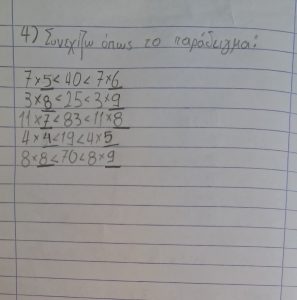 4) Συνεχίζω όπως το παράδειγμα:
7×5<40<7×6
3×8<25<3×9
11×7<83<11×8
4×4<19<4×5
8×8<70<8×9